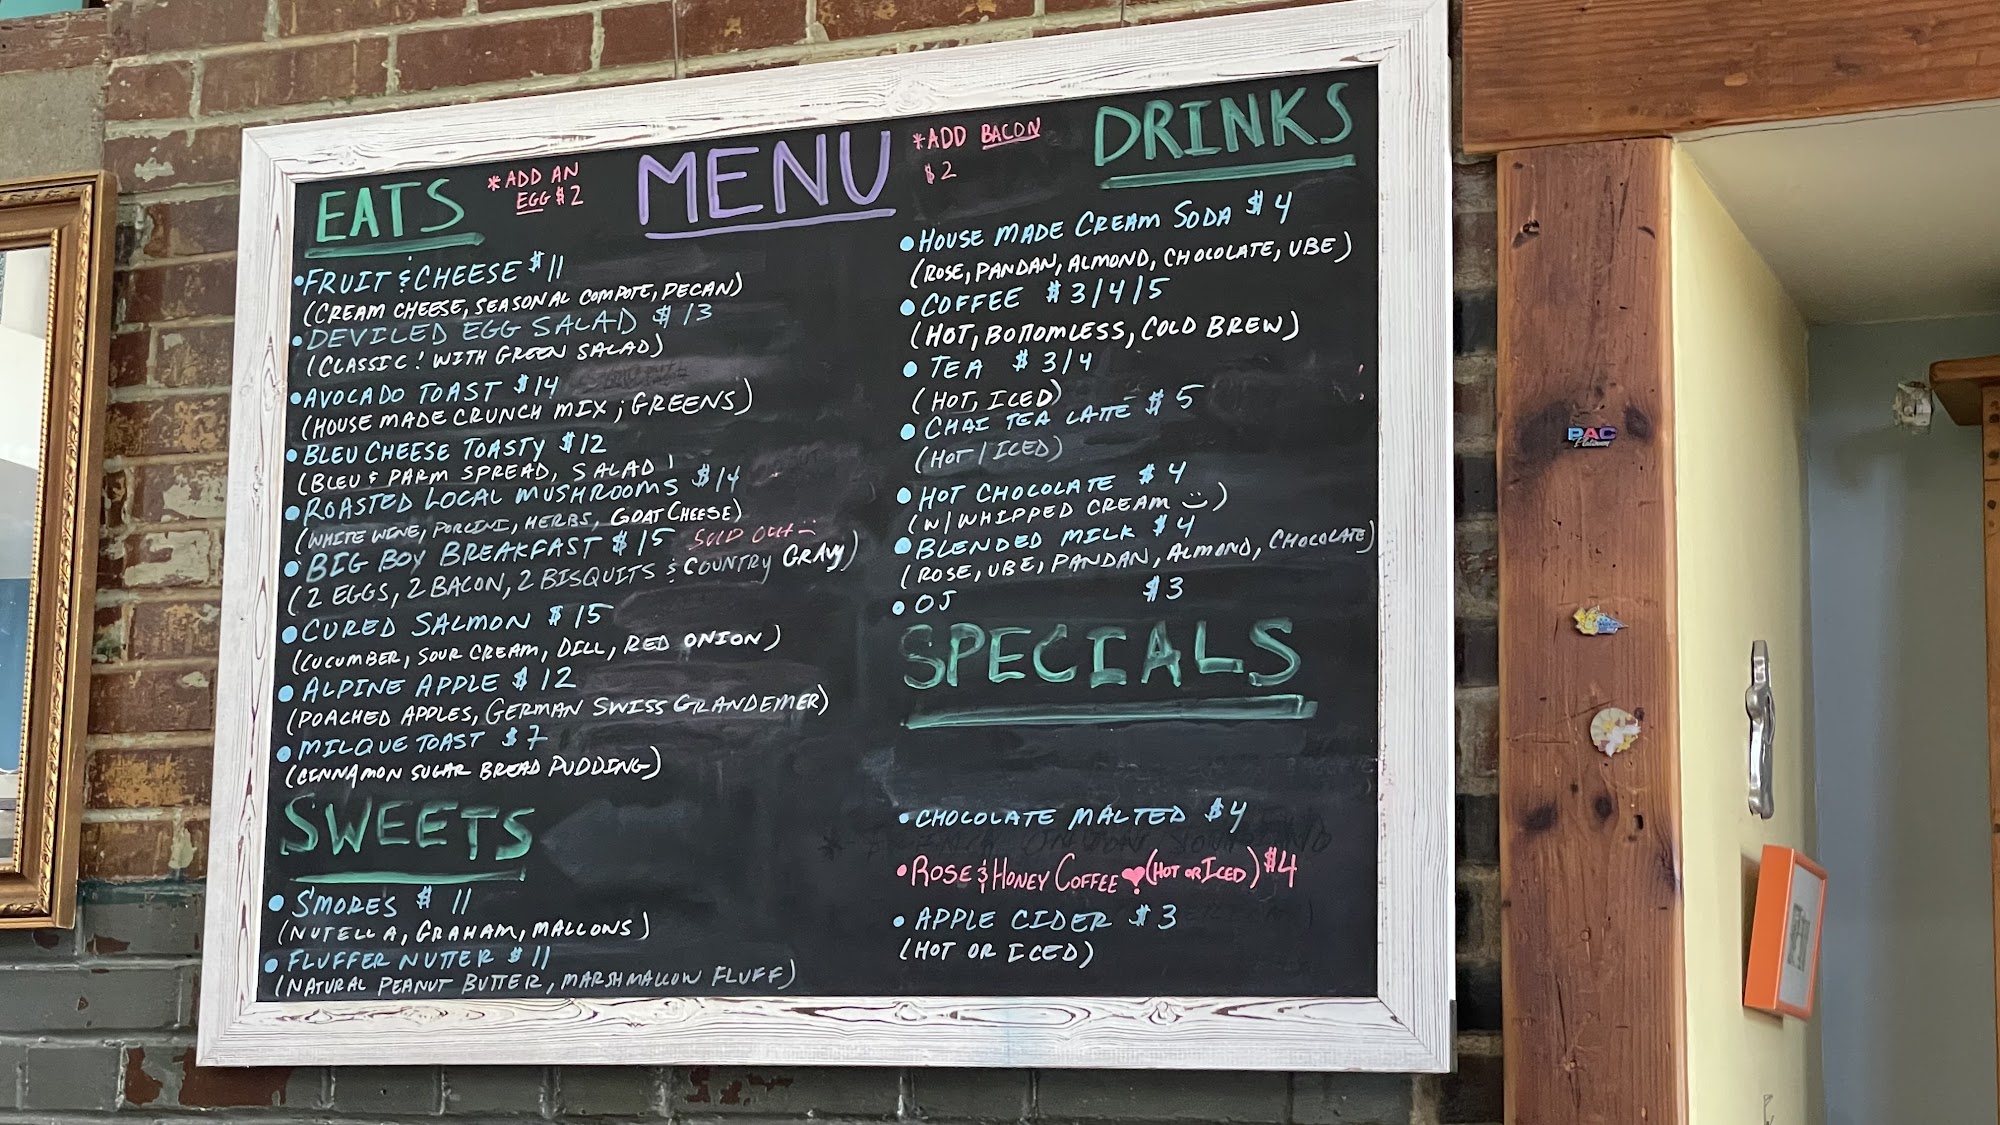 MENU
EATS
*ADD AN
EGG $2
*ADD BACON
$2
•FRUIT & CHEESE $11
(CREAM CHEESE, SEASONAL COMPOTE, PECAN)
•DEVILED EGG SALAD $13
(CLASSIC! WITH GREEN SALAD)
•AVOCADO TOAST $14
(HOUSE MADE CRUNCH MIX ; GREENS)
•BLEU CHEESE TOASTY $12
(BLEU & PARM SPREAD, SALAD)
•ROASTED LOCAL MUSHROOMS $14
(WHITE WINE, PORCINI, HERBS, GOAT CHEESE)
•BIG BOY BREAKFAST $15 SOLD OUT
(2 EGGS, 2 BACON, 2 BISQUITS & COUNTRY GRAVY)
•CURED SALMON $15
(CUCUMBER, SOUR CREAM, DILL, RED ONION)
•ALPINE APPLE $12
(POACHED APPLES, GERMAN SWISS GRANDEMER)
•MILQUE TOAST $7
(CINNAMON SUGAR BREAD PUDDING)
SWEETS
•S'MORES $11
(NUTELLA, GRAHAM, MALLOWS)
•FLUFFER NUTTER $11
(NATURAL PEANUT BUTTER, MARSHMALLOW FLUFF)
DRINKS
•HOUSE MADE CREAM SODA $4
(ROSE, PANDAN, ALMOND, CHOCOLATE, UBE)
•COFFEE $3/4/5
(HOT, BOTTOMLESS, COLD BREW)
•TEA $3/4
(HOT, ICED)
•CHAI TEA LATTE $5
(HOT/ICED)
•HOT CHOCOLATE $4
(W/WHIPPED CREAM :))
•BLENDED MILK $4
(ROSE, UBE, PANDAN, ALMOND, CHOCOLATE)
•OJ $3
SPECIALS
•CHOCOLATE MALTED $4
•ROSE & HONEY COFFEE (HOT OR ICED) $4
•APPLE CIDER $3
(HOT OR ICED)
PAC
Platinum